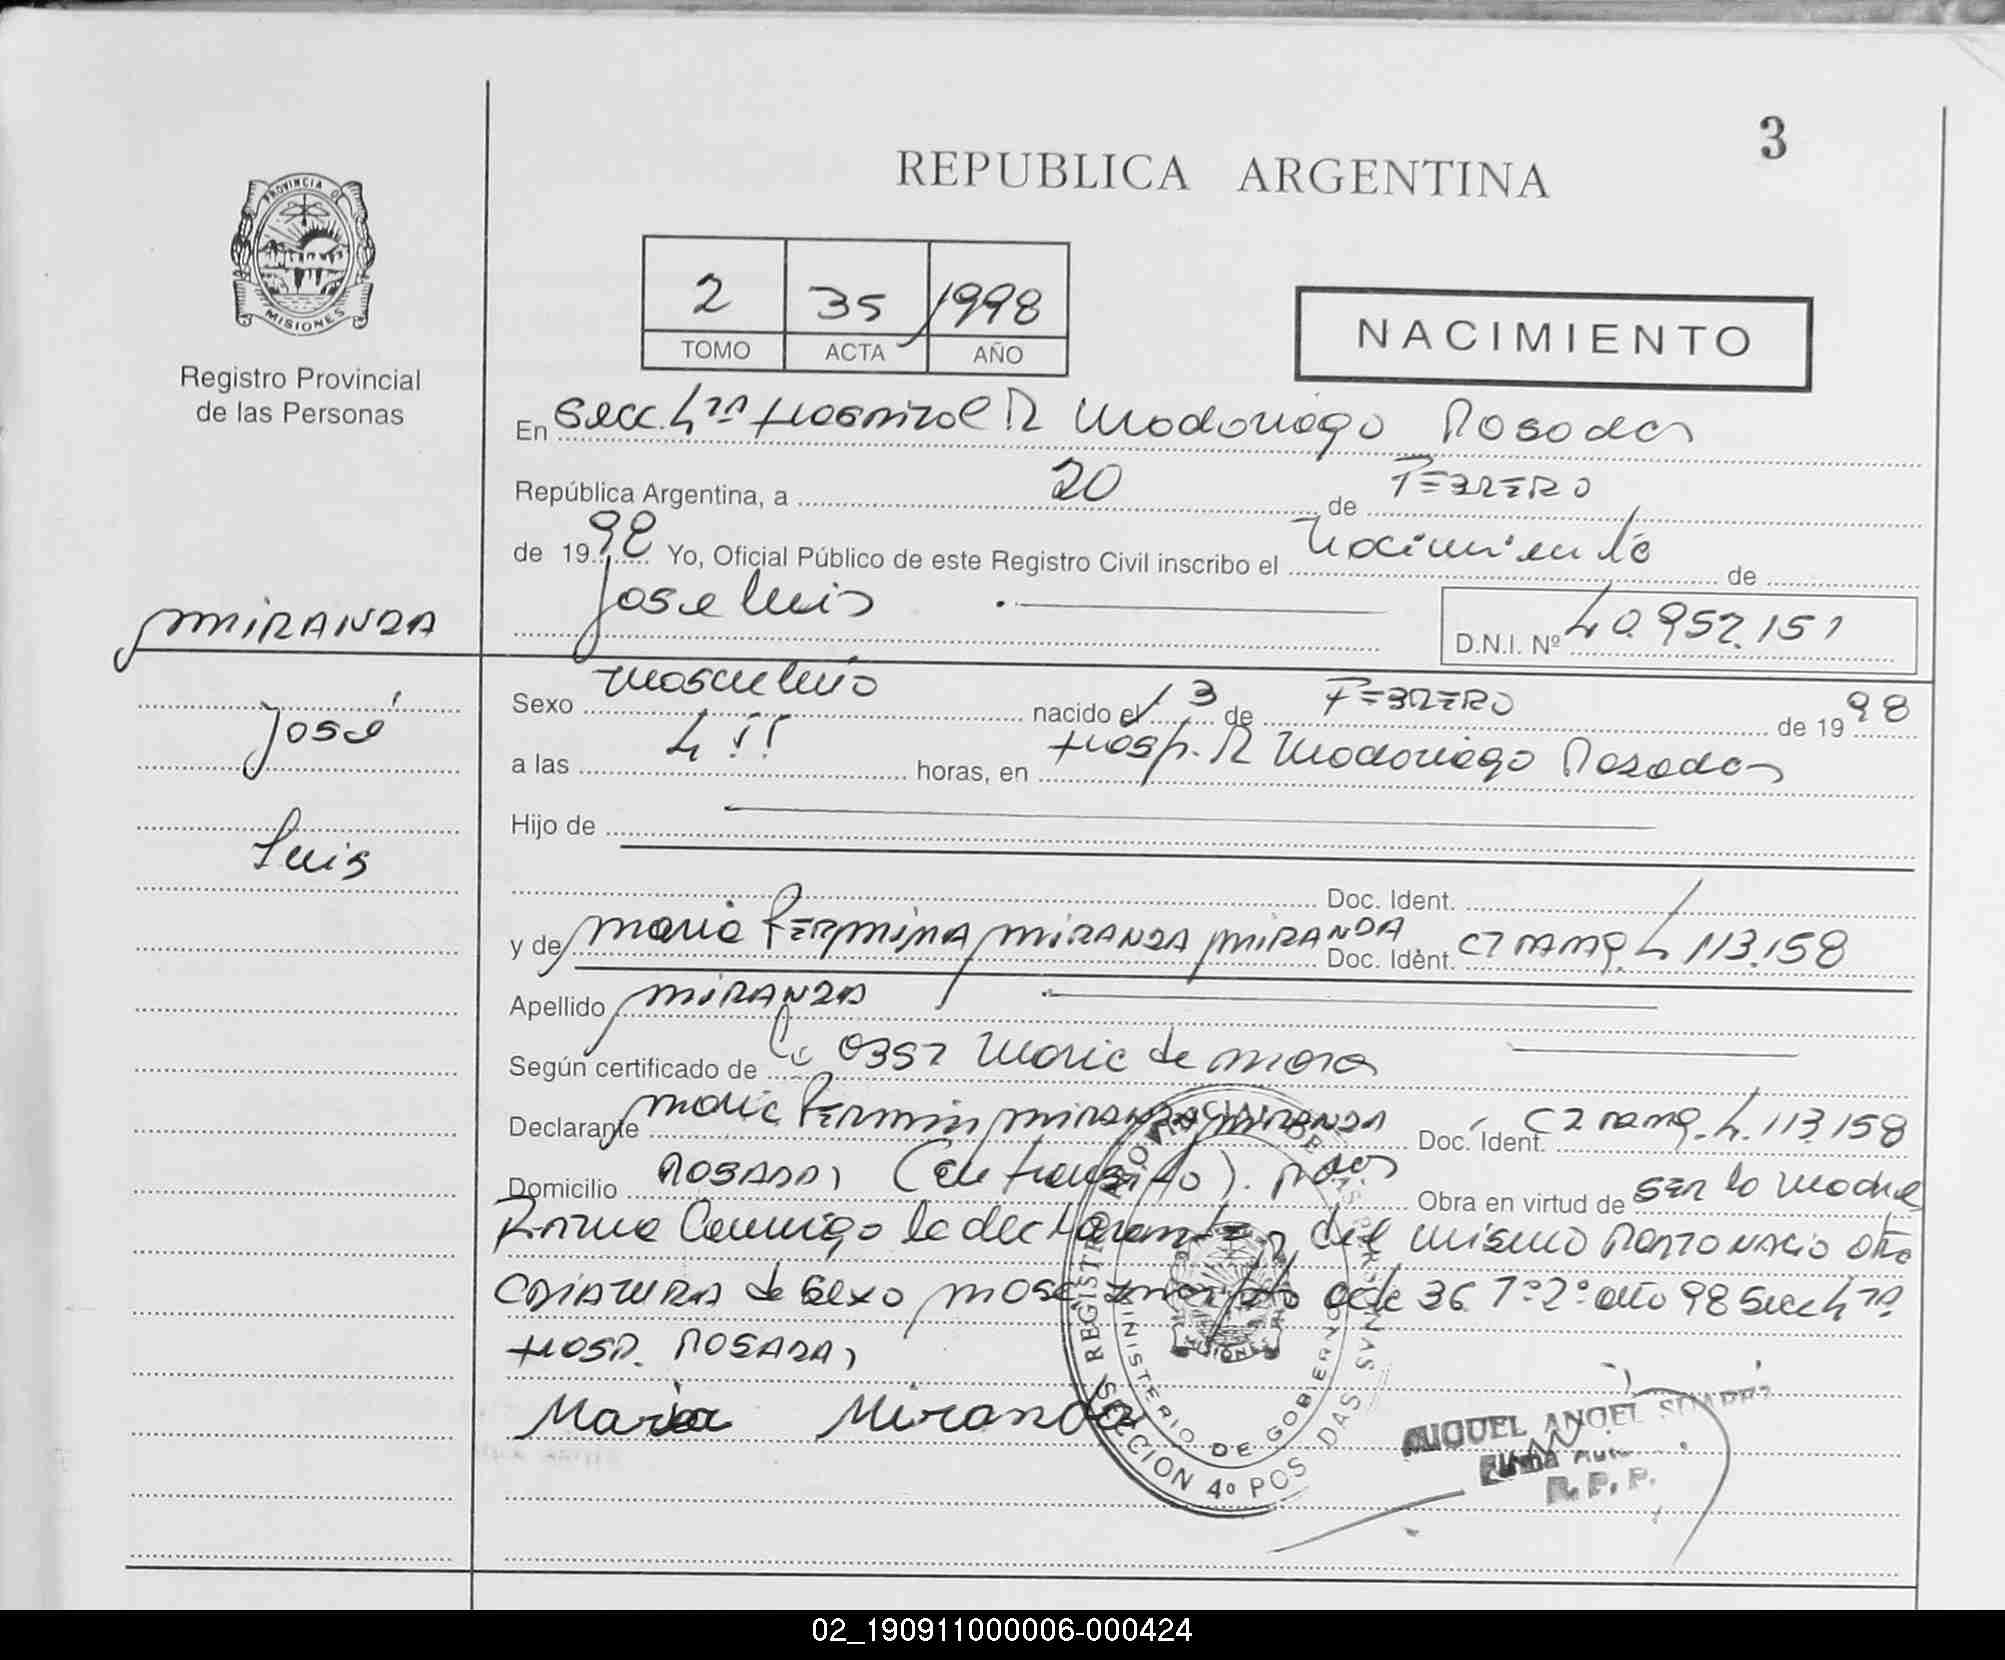 3
REPUBLICA ARGENTINA
PROVINCIA DE
MISIONES
Registro Provincial
de las Personas
2 35 1998
TOMO ACTA AÑO
NACIMIENTO
En Secc. 4ta Hospital R Madariaga Posadas
República Argentina, a 20 de FEBRERO
de 1998 Yo, Oficial Público de este Registro Civil inscribo el Nacimiento de
Jose Luis D.N.I. Nº 40.952.151
MIRANDA
José
Luis
Sexo Masculino nacido el 13 de FEBRERO de 1998
a las 4 horas, en Hosp. R Madariaga Posadas
Hijo de
Doc. Ident.
y de Maria FERMINA MIRANDA MIRANDA Doc. Ident. CI 4113.158
Apellido MIRANDA
Según certificado de Obst Maria de Mora
Declarante Maria Fermin MIRANDA MIRANDA Doc. Ident. CI 4.113.158
Domicilio POSADAS (en transito). Pdas Obra en virtud de SER la madre
Firma Conmigo la declarante del mismo PARTO NACIO otra
CRIATURA de sexo masc 36 Tº2º año 98 Secc 4ta
HOSP. POSADAS
Maria Miranda
REGISTRO PROVINCIAL DE LAS PERSONAS
SECCION 4º POSADAS
MINISTERIO DE GOBIERNO
MISIONES
MIGUEL ANGEL SUAREZ
Firma Aut
R.P.P.
02_190911000006-000424